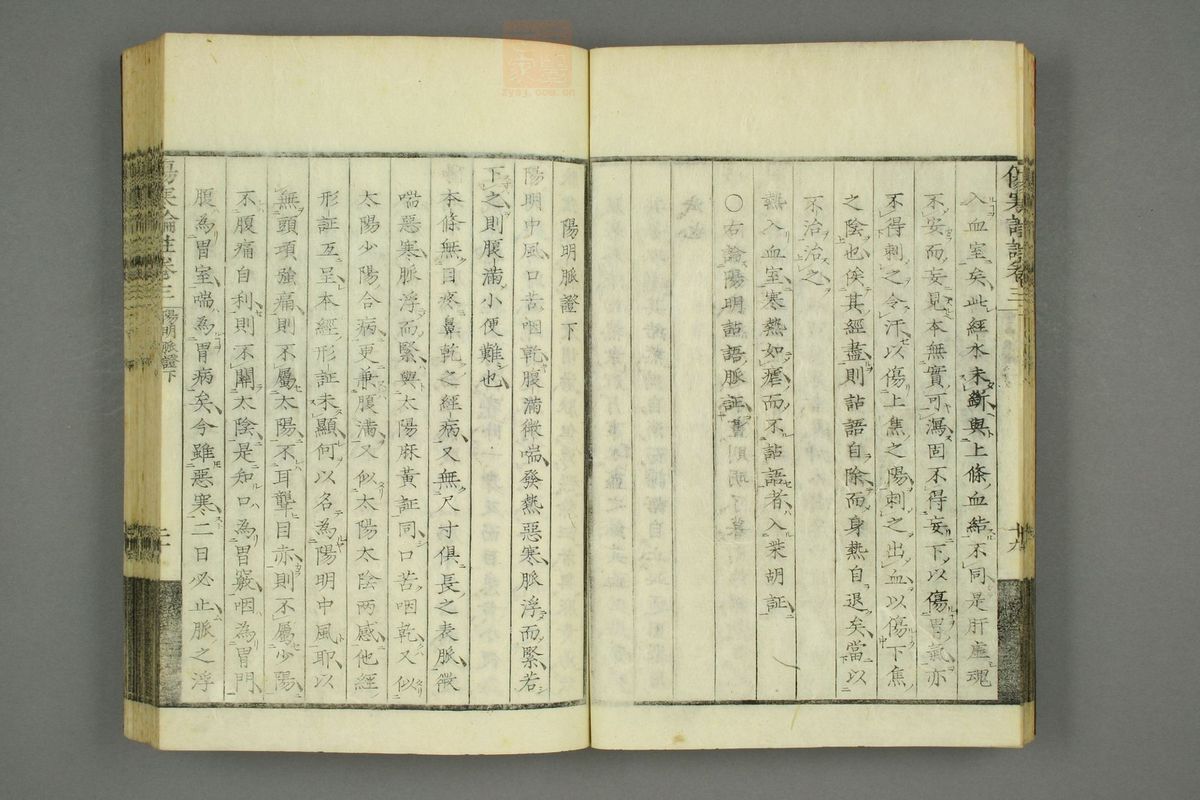 入血室矣此經水未斷與上條血結不同是肝虛魂
不安而妄見本無實可瀉固不得妄下以傷胃氣亦
不得刺之令汗以傷上焦之陽刺之出血以傷下焦
之陰也俟其經盡則詀語自除而身熱自退矣當以
不治治之
熱入血室寒熱如瘧而不詀語者入柴胡証
〇右論陽明詀語脈証
陽明脈證下
陽明中風口苦咽乾腹滿微喘發熱惡寒脈浮而緊若
下之則腹滿小便難也
本條無目疼鼻乾之經病又無尺寸俱長之表脈微
喘惡寒脈浮而緊與太陽麻黃証同口苦咽乾又似
太陽少陽合病更兼腹滿又似太陽太陰兩感他經
形証互呈本經形証未顯何以名為陽明中風耶以
無頭項強痛則不屬太陽不耳聾目赤則不屬少陽
不腹痛自利則不關太陰是知口為胃竅咽為胃門
腹為胃室喘為胃病矣今雖惡寒二日必止脈之浮
傷寒論註卷三 陽明脈證下
zysj.com.cn